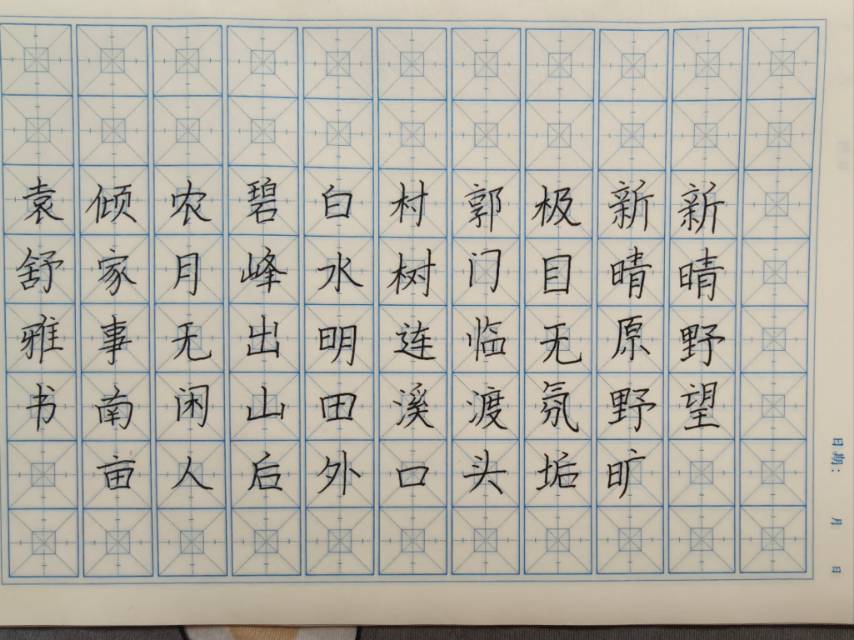 新晴野望
新晴原野旷
极目无氛垢
郭门临渡头
村树连溪口
白水明田外
碧峰出山后
农月无闲人
倾家事南亩
袁舒雅书
日期：　月　日